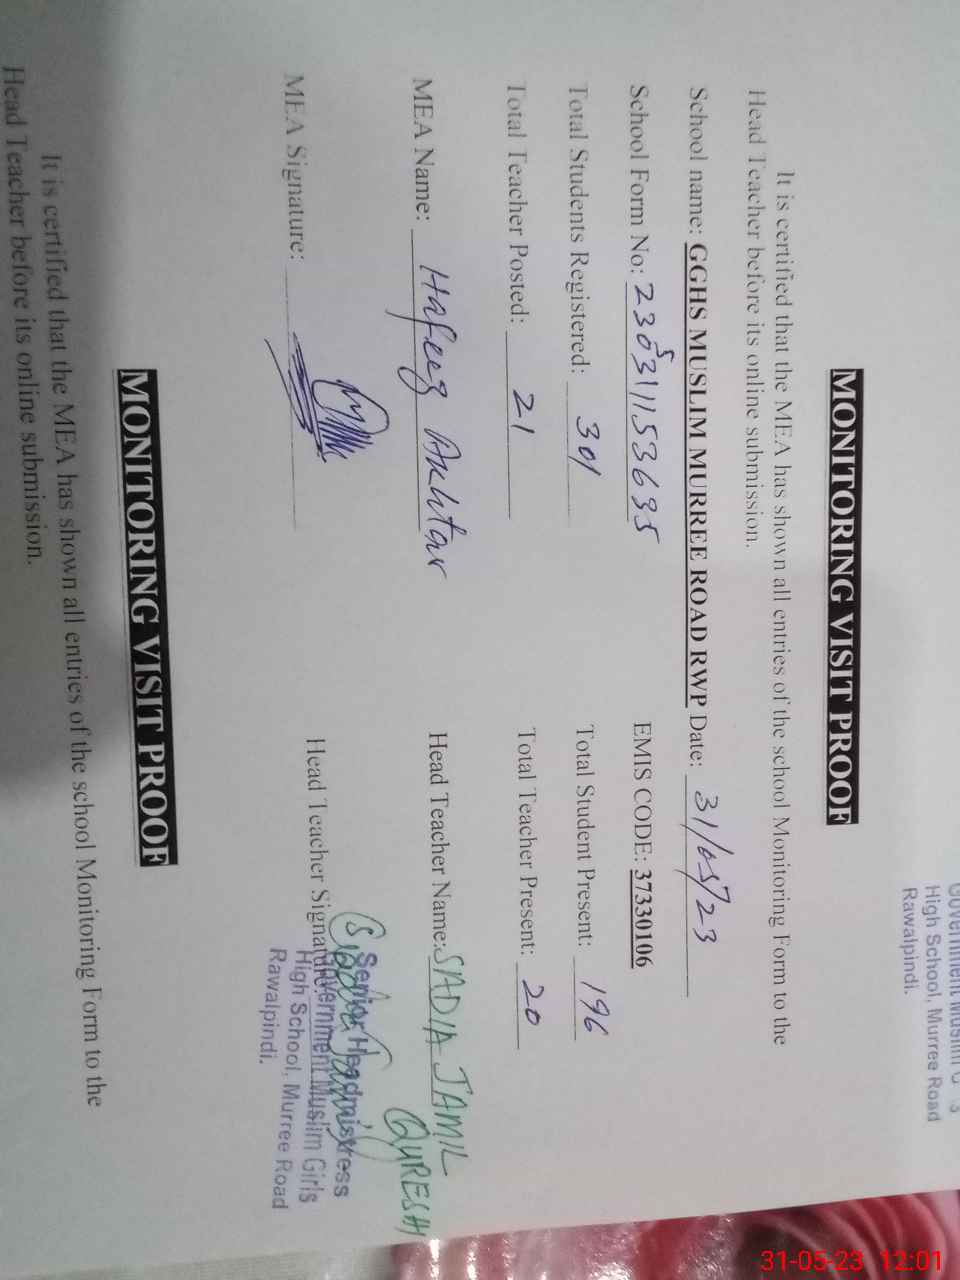 Government Muslim G s
High School, Murree Road
Rawalpindi.
MONITORING VISIT PROOF
It is certified that the MEA has shown all entries of the school Monitoring Form to the
Head Teacher before its online submission.
School name: GGHS MUSLIM MURREE ROAD RWP Date: 31/05/23
School Form No: 2305311153635 EMIS CODE: 37330106
Total Students Registered: 301 Total Student Present: 196
Total Teacher Posted: 21 Total Teacher Present: 20
MEA Name: Hafeez Akhtar Head Teacher Name: SADIA JAMIL
QURESHI
MEA Signature: Head Teacher Signature:
Senior Headmistress
Government Muslim Girls
High School, Murree Road
Rawalpindi.
MONITORING VISIT PROOF
It is certified that the MEA has shown all entries of the school Monitoring Form to the
Head Teacher before its online submission.
31-05-23 12:01